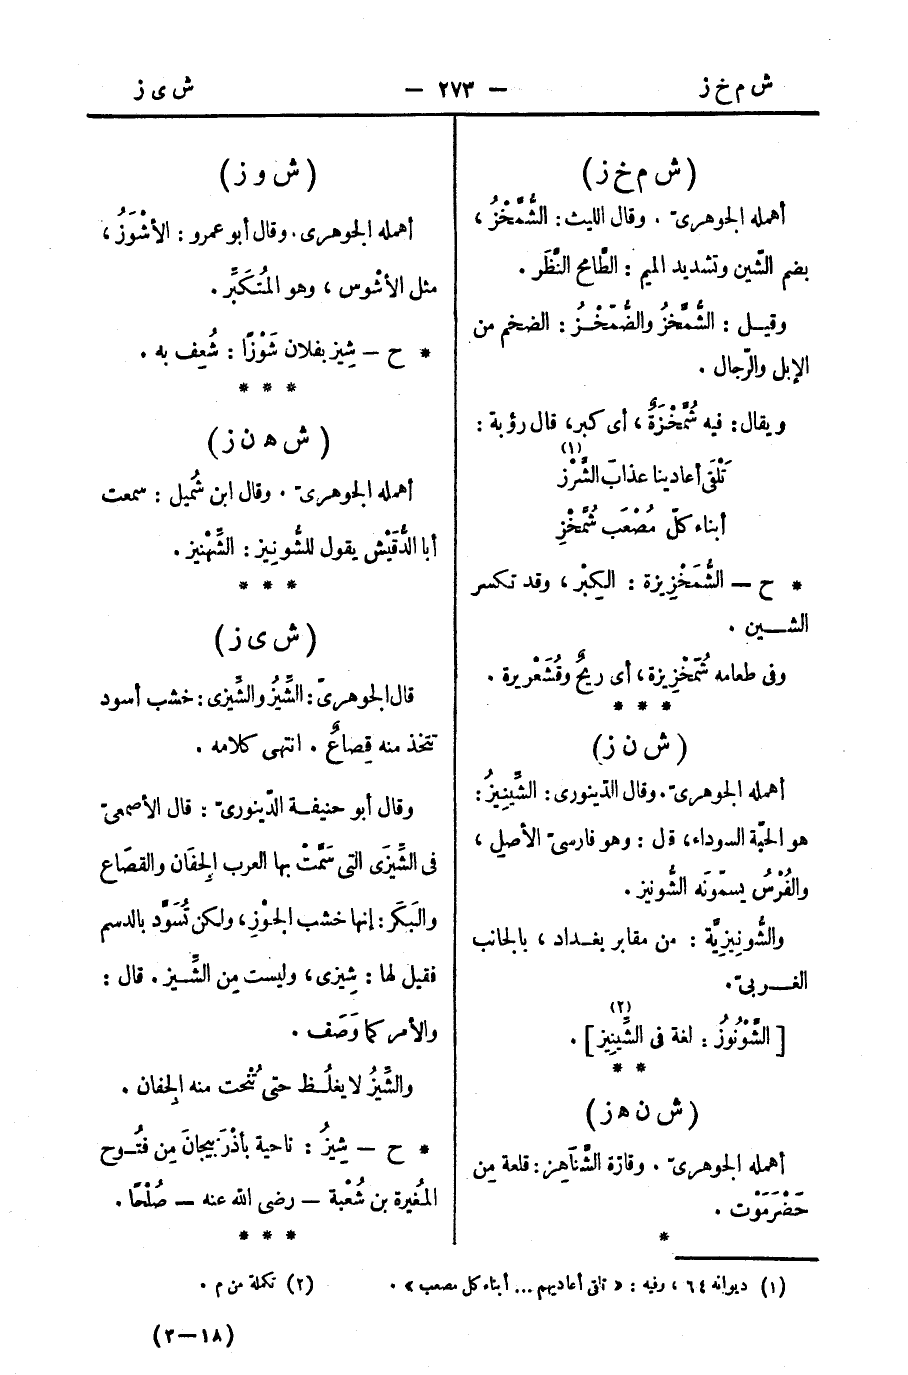 ش م خ ز — ٢٧٣ — ش ى ز
(ش م خ ز)
أهمله الجوهرىّ . وقال الليث : الشُّمَّخْزُ ،
بضم الشّين وتشديد الميم : الطَّامح النَّظَر .
وقيــل : الشُّمَّخْزُ والضُّمَّخْــزُ : الضخم من
الإبل والرّجال .
ويقال : فيه شُمَّخْزَةٌ ، أى كبر ، قال رؤبة :
تَلْقَى أعادينا عذابَ الشَّرْزِ (١)
أبناء كلّ مُصْعَب شُمَّخْزِ
* ح — الشُّمَّخْزِيزة : الكِبْر ، وقد تكسر
الشــين .
وفى طعامه شُمَّخْزِيزة ، أى ريحٌ وقُشَعْرِيرة .
* * *
(ش ن ز)
أهمله الجوهرىّ . وقال الدّينورى : الشِّينِيزُ :
هو الحبّة السوداء ، قال : وهو فارسىّ الأصل ،
والفُرْسُ يسمّونَه الشُّونيز .
والشُّونِيزِيَّة : من مقابر بغــداد ، بالجانب
الغــربىّ .
[ الشُّوْنُوزُ : لغة فى الشِّينِيز (٢) ] .
* *
(ش ن ه ز)
أهمله الجوهرىّ . وقارَة الشَّنَاهِز : قلعة من
حَضْرَمَوْت .
*
(ش و ز)
أهمله الجوهرى . وقال أبو عمرو : الأشْوَزُ ،
مثل الأشْوس ، وهو المُتَكَبِّر .
* ح — شِيز بفلان شَوْزًا : شُعِف به .
* * *
(ش ه ن ز)
أهمله الجوهرىّ . وقال ابن شُميل : سمعت
أبا الدُّقَيْش يقول للشُّونِيز : الشِّهْنِيز .
* * *
(ش ى ز)
قال الجوهرىّ : الشِّيزُ والشِّيزى : خشب أسود
تتخذ منه قِصاعٌ . انتهى كلامه .
وقال أبو حنيفــة الدّينورىّ : قال الأصمعىّ
فى الشِّيزَى التى سَمَّتْ بها العرب الجِفَان والقصَاع
والبَكَر : إنها خشب الجَوْزِ ، ولكن تُسَوَّد بالدسم
فقيل لها : شِيزى ، وليست مِن الشِّــيز . قال :
والأمر كما وَصَف .
والشِّيزُ لا يغلُــظ حتى تُنْحت منه الجِفان .
* ح — شِيزُ : ناحية بأذْرَبِيجانَ مِن فتُــوح
المُغيرة بن شُعْبة — رضى الله عنه — صُلْحًا .
* * *
(١) ديوانه ٦٤ ، وفيه : « تلقى أعاديهم ... أبناء كل مصعب » .
(٢) تكملة من م .
(١٨—٣)